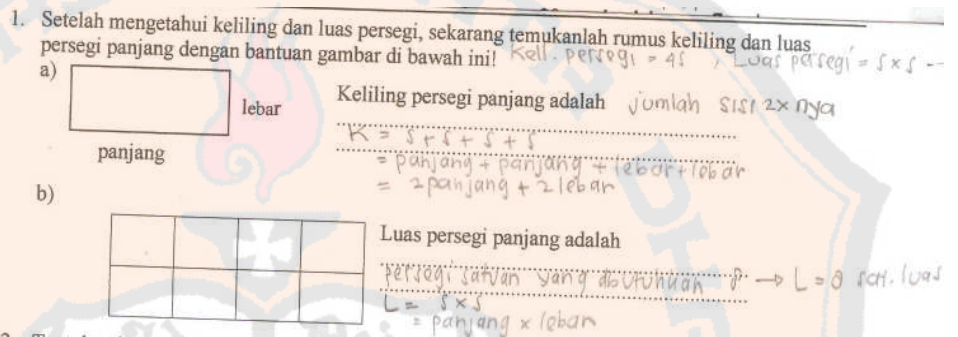 1. Setelah mengetahui keliling dan luas persegi, sekarang temukanlah rumus keliling dan luas
persegi panjang dengan bantuan gambar di bawah ini! Kell. persegi = 4s , Luas persegi = s x s --
a)
lebar
panjang
Keliling persegi panjang adalah jumlah sisi 2x nya
K = s + s + s + s
= panjang + panjang + lebar + lebar
= 2 panjang + 2 lebar
b)
Luas persegi panjang adalah
persegi satuan yang dibutuhkan 8 → L = 8 sat. luas
L = s x s
= panjang x lebar